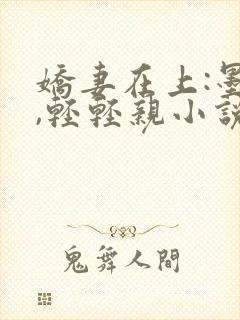 嬌妻在上:墨
,輕輕親小說
鬼舞人間